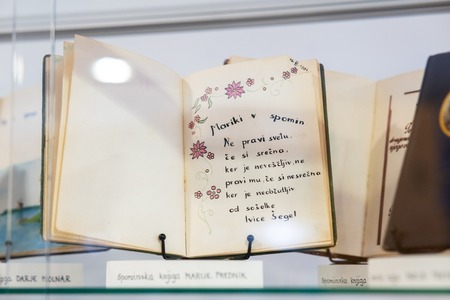 Mariki v spomin
Ne pravi svetu,
če si srečna,
ker je nevoščljiv, ne
pravi mu, če si nesrečna
ker je neobčutljiv
od sošolke
Ivice Šegel
DARJE MOLNAR
Spominska knjiga MARIJE PREDNIK
Spominska knjiga